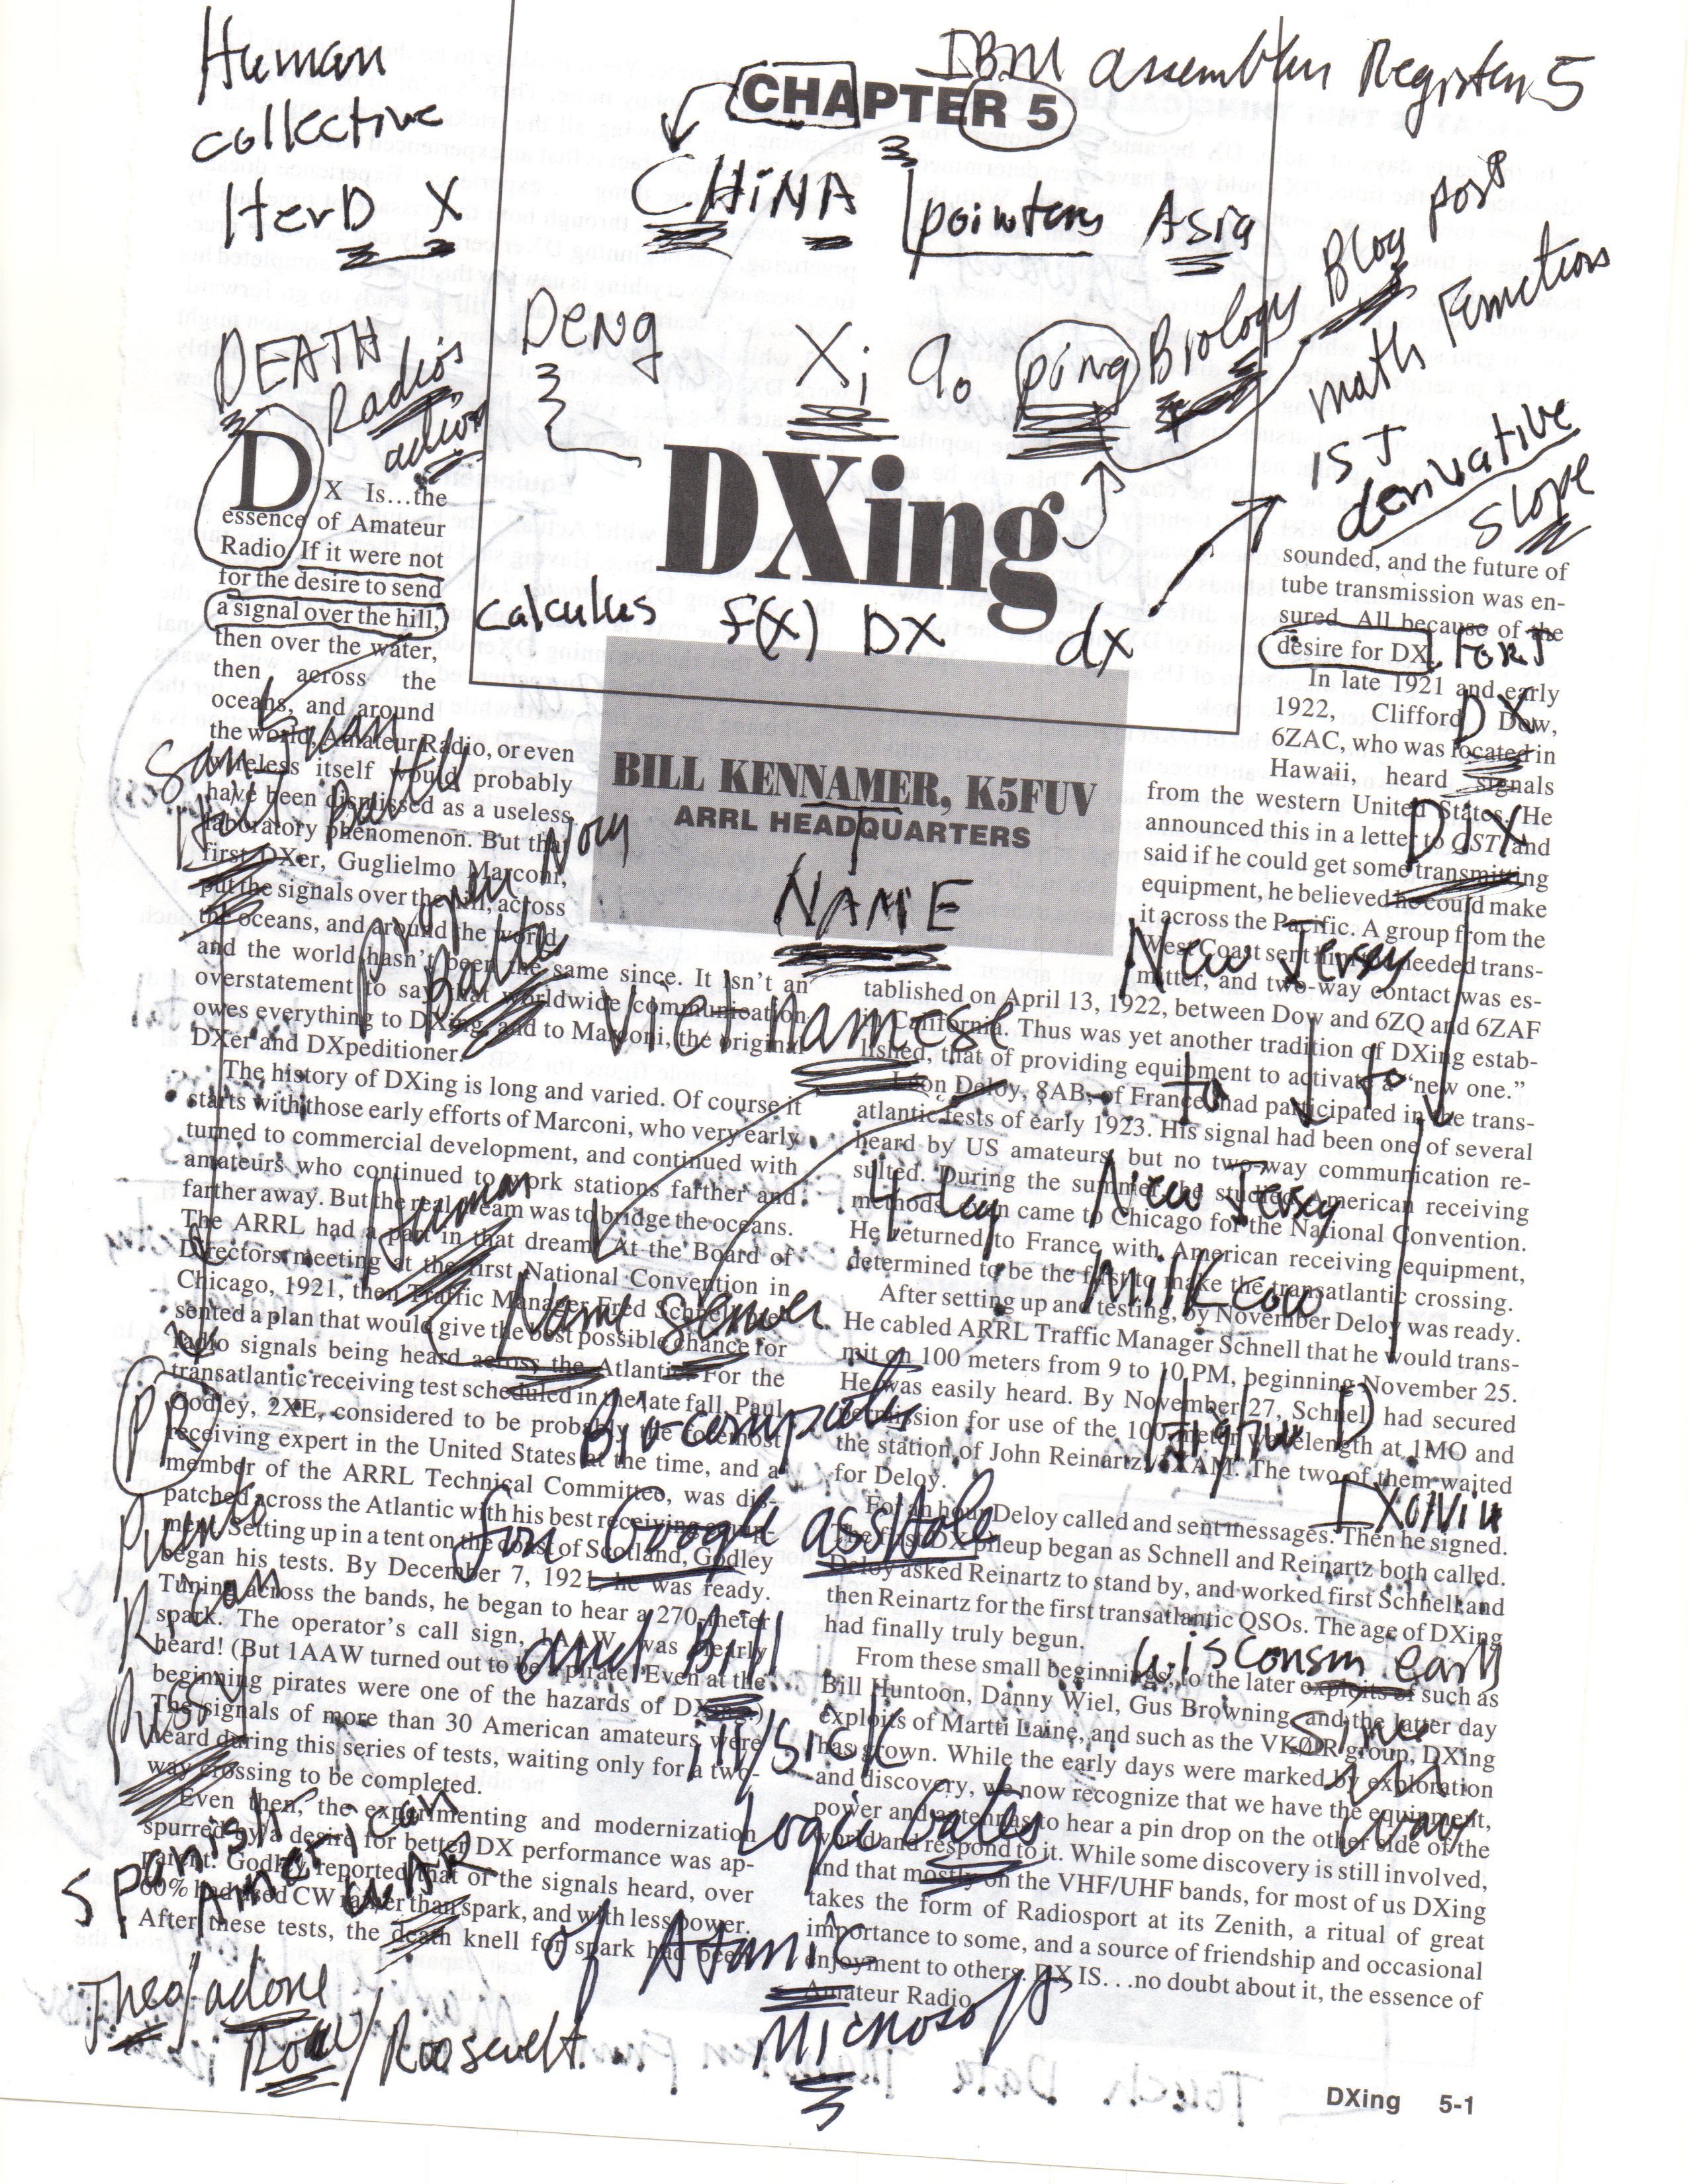 Human
collective
HerD X
IBM assembler Register 5
CHAPTER 5
CHINA
pointers Asia
Blog post
Deng
Xi
ping Biology
math Functions
IS J
derivative
slope
DEATH
Radios
DXing
calculus f(x) DX dx
BILL KENNAMER, K5FUV
ARRL HEADQUARTERS
NAME
DX Is...the
essence of Amateur
Radio. If it were not
for the desire to send
a signal over the hill,
then over the water,
then across the
oceans, and around
the world, Amateur Radio, or even
wireless itself would probably
have been dismissed as a useless
laboratory phenomenon. But that
first DXer, Guglielmo Marconi,
put the signals over the hill, across
the oceans, and around the world,
and the world hasn't been the same since. It isn't an
overstatement to say that worldwide communication
owes everything to DXing, and to Marconi, the original
DXer and DXpeditioner.
The history of DXing is long and varied. Of course it
starts with those early efforts of Marconi, who very early
turned to commercial development, and continued with
amateurs who continued to work stations farther and
farther away. But the real dream was to bridge the oceans.
The ARRL had a part in that dream. At the Board of
Directors meeting at the first National Convention in
Chicago, 1921, then Traffic Manager Fred Schnell pre-
sented a plan that would give the best possible chance for
radio signals being heard across the Atlantic. For the
transatlantic receiving test scheduled in the late fall, Paul
Godley, 2XE, considered to be probably the foremost
receiving expert in the United States at the time, and a
member of the ARRL Technical Committee, was dis-
patched across the Atlantic with his best receiving equip-
ment. Setting up in a tent on the coast of Scotland, Godley
began his tests. By December 7, 1921, he was ready.
Tuning across the bands, he began to hear a 270-meter
spark. The operator's call sign, 1AAW, was clearly
heard! (But 1AAW turned out to be a pirate! Even at the
beginning pirates were one of the hazards of DXing.)
The signals of more than 30 American amateurs were
heard during this series of tests, waiting only for a two-
way crossing to be completed.
Even then, the experimenting and modernization
spurred by a desire for better DX performance was ap-
parent. Godley reported that of the signals heard, over
60% had used CW rather than spark, and with less power.
After these tests, the death knell for spark had been
sounded, and the future of
tube transmission was en-
sured. All because of the
desire for DX.
In late 1921 and early
1922, Clifford Dow,
6ZAC, who was located in
Hawaii, heard signals
from the western United States. He
announced this in a letter to QST and
said if he could get some transmitting
equipment, he believed he could make
it across the Pacific. A group from the
West Coast sent him the needed trans-
mitter, and two-way contact was es-
tablished on April 13, 1922, between Dow and 6ZQ and 6ZAF
in California. Thus was yet another tradition of DXing estab-
lished, that of providing equipment to activate a "new one."
Léon Deloy, 8AB, of France had participated in the trans-
atlantic tests of early 1923. His signal had been one of several
heard by US amateurs, but no two-way communication re-
sulted. During the summer, he studied American receiving
methods, even came to Chicago for the National Convention.
He returned to France with American receiving equipment,
determined to be the first to make the transatlantic crossing.
After setting up and testing, by November Deloy was ready.
He cabled ARRL Traffic Manager Schnell that he would trans-
mit on 100 meters from 9 to 10 PM, beginning November 25.
He was easily heard. By November 27, Schnell had secured
permission for use of the 100-meter wavelength at 1MO and
the station of John Reinartz, 1XAM. The two of them waited
for Deloy.
For an hour Deloy called and sent messages. Then he signed.
The first DX pileup began as Schnell and Reinartz both called.
Deloy asked Reinartz to stand by, and worked first Schnell and
then Reinartz for the first transatlantic QSOs. The age of DXing
had finally truly begun.
From these small beginnings, to the later exploits of such as
Bill Huntoon, Danny Wiel, Gus Browning, and the latter day
exploits of Martti Laine, and such as the VKØIR group, DXing
has grown. While the early days were marked by exploration
and discovery, we now recognize that we have the equipment,
power and antennas to hear a pin drop on the other side of the
world and respond to it. While some discovery is still involved,
and that mostly on the VHF/UHF bands, for most of us DXing
takes the form of Radiosport at its Zenith, a ritual of great
importance to some, and a source of friendship and occasional
enjoyment to others. DX IS. . .no doubt about it, the essence of
Amateur Radio.
San Juan
Hill Battle
Battle
VietNamese
Human
Name Server
Bio-computer
for Google
and Bill
ill/sick
Logic Gates
of Atomic
Microsoft
PR
Puerto
Rican
Spanish
American
WAR
Theo/adore
Roosevelt
Fort
DX
DdX
New Jersey
to to
4-leg New Jersey
Milk cow
Wisconsin early
Sine
wave
DXing 5-1